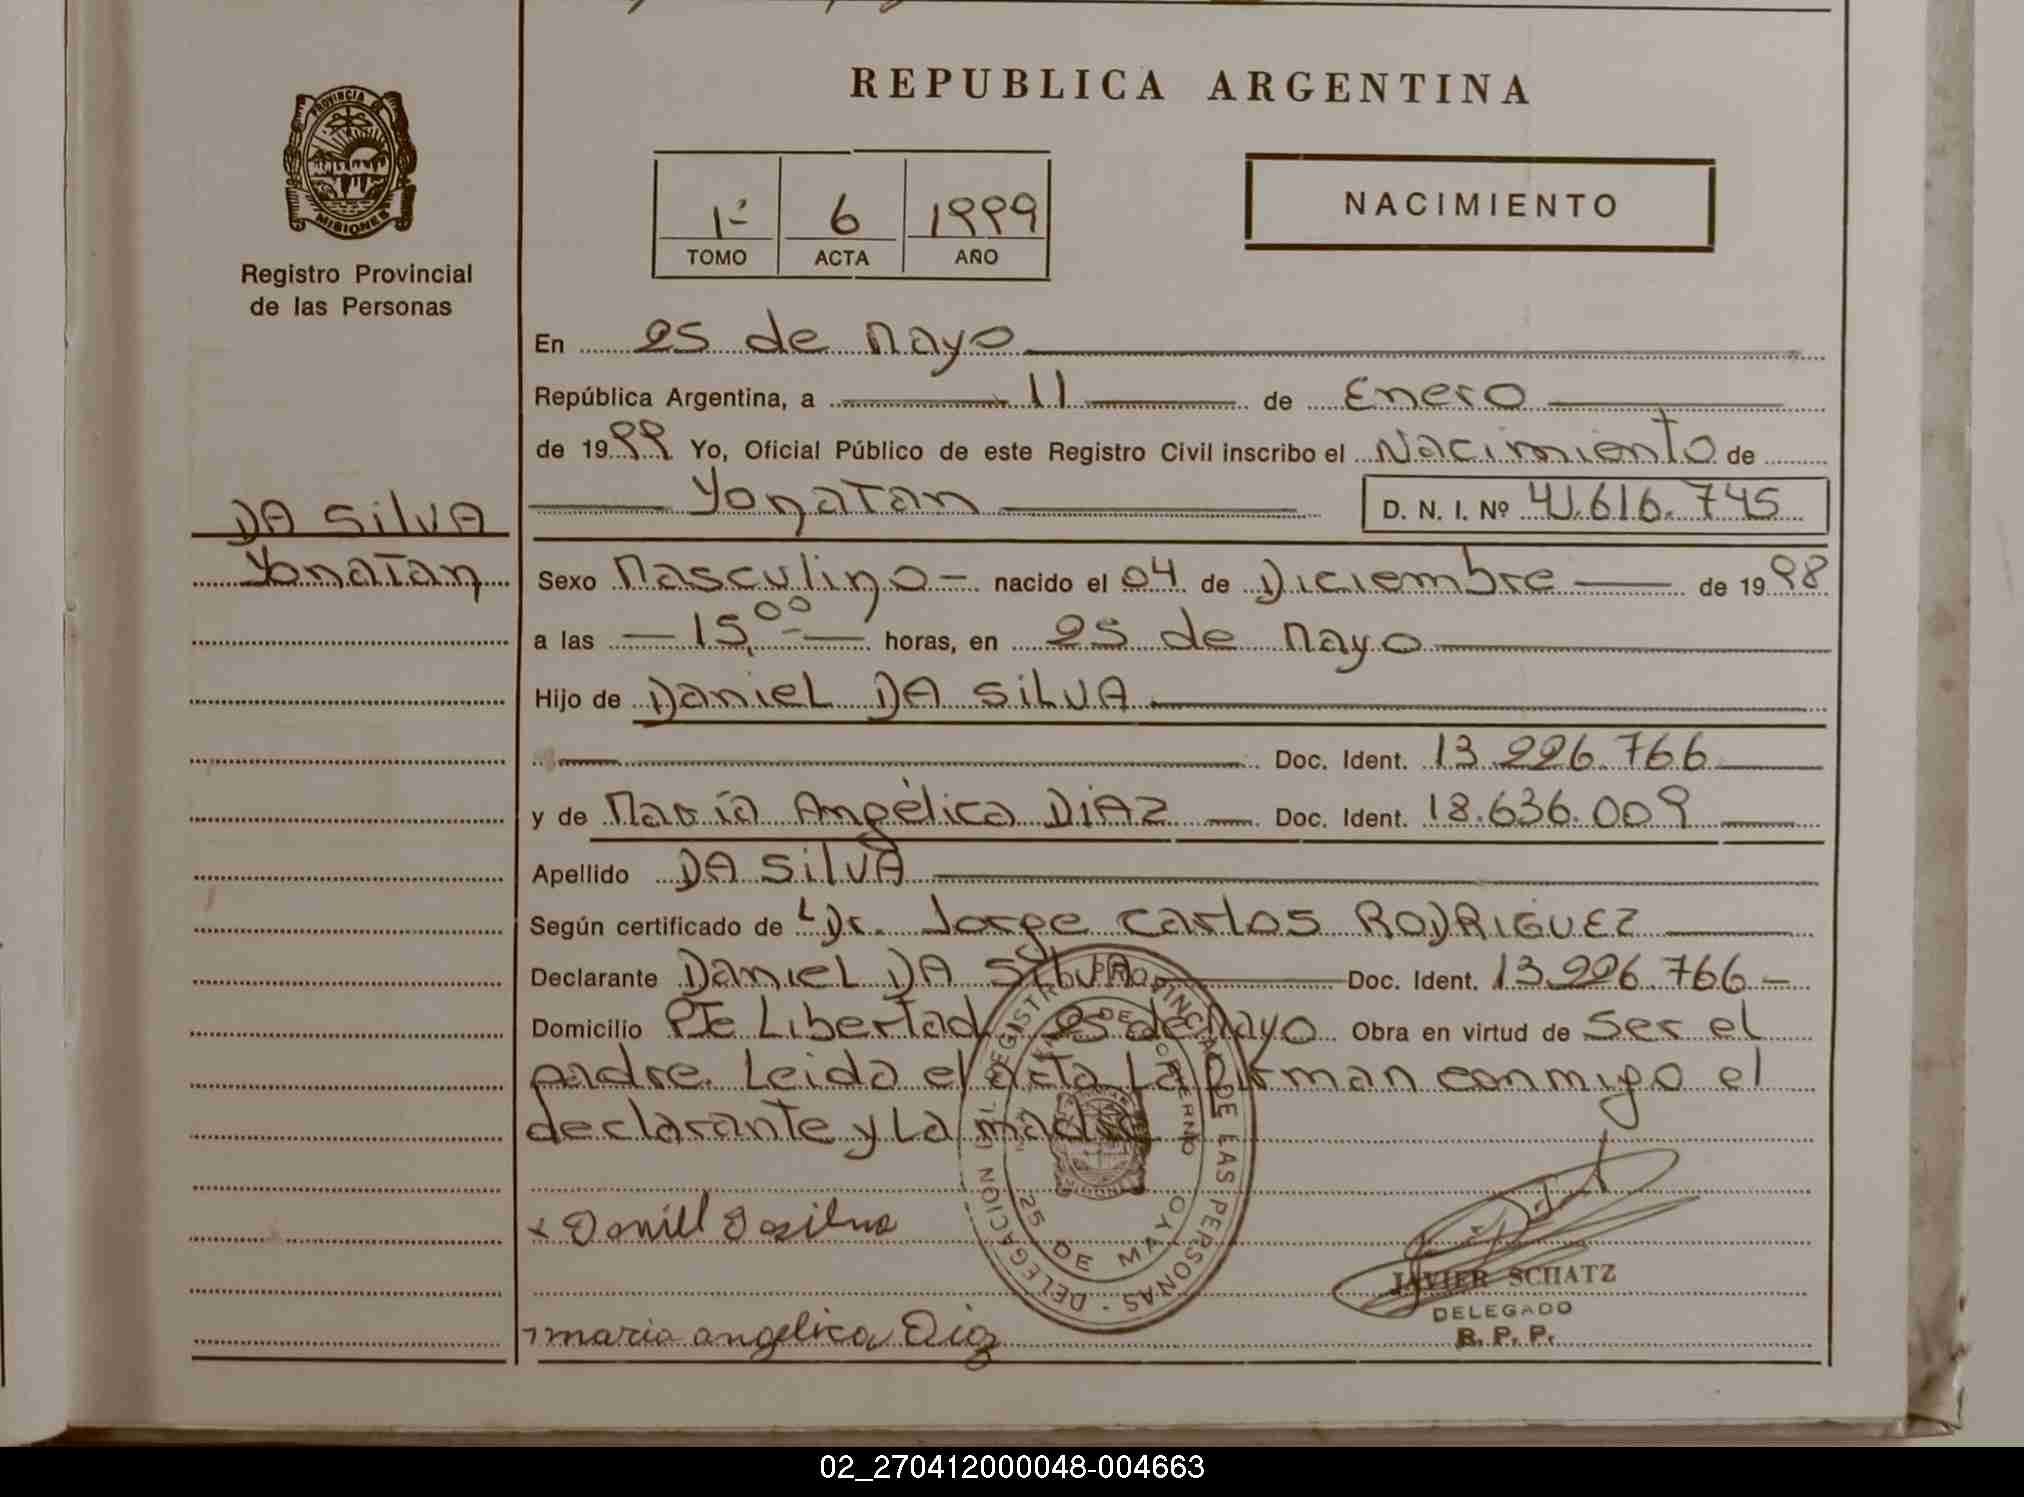 REPUBLICA ARGENTINA
PROVINCIA DE
MISIONES
Registro Provincial
de las Personas
1º 6 1999
TOMO ACTA AÑO
NACIMIENTO
En 25 de Mayo
República Argentina, a 11 de Enero
de 1999 Yo, Oficial Público de este Registro Civil inscribo el Nacimiento de
Yonatan D. N. I. Nº 41.616.745
DA SilVA
Yonatan
Sexo Masculino nacido el 04 de Diciembre de 1998
a las 15,00 horas, en 25 de Mayo
Hijo de Daniel DA SilVA
Doc. Ident. 13.226.766
y de María Angélica DiAZ Doc. Ident. 18.636.009
Apellido DA SilVA
Según certificado de Dr. Jorge Carlos RODRIGUEZ
Declarante Daniel DA SilVA Doc. Ident. 13.226.766
Domicilio Pje Libertad 25 de Mayo Obra en virtud de Ser el
padre. Leida el acta La firman conmigo el
declarante y La madre
REGISTRO PROVINCIAL DE LAS PERSONAS - DELEGACION
DE GOBIERNO
25 DE MAYO
Daniel Dasilva
JAVIER SCHATZ
DELEGADO
R. P. P.
maria angelica Diaz
02_270412000048-004663